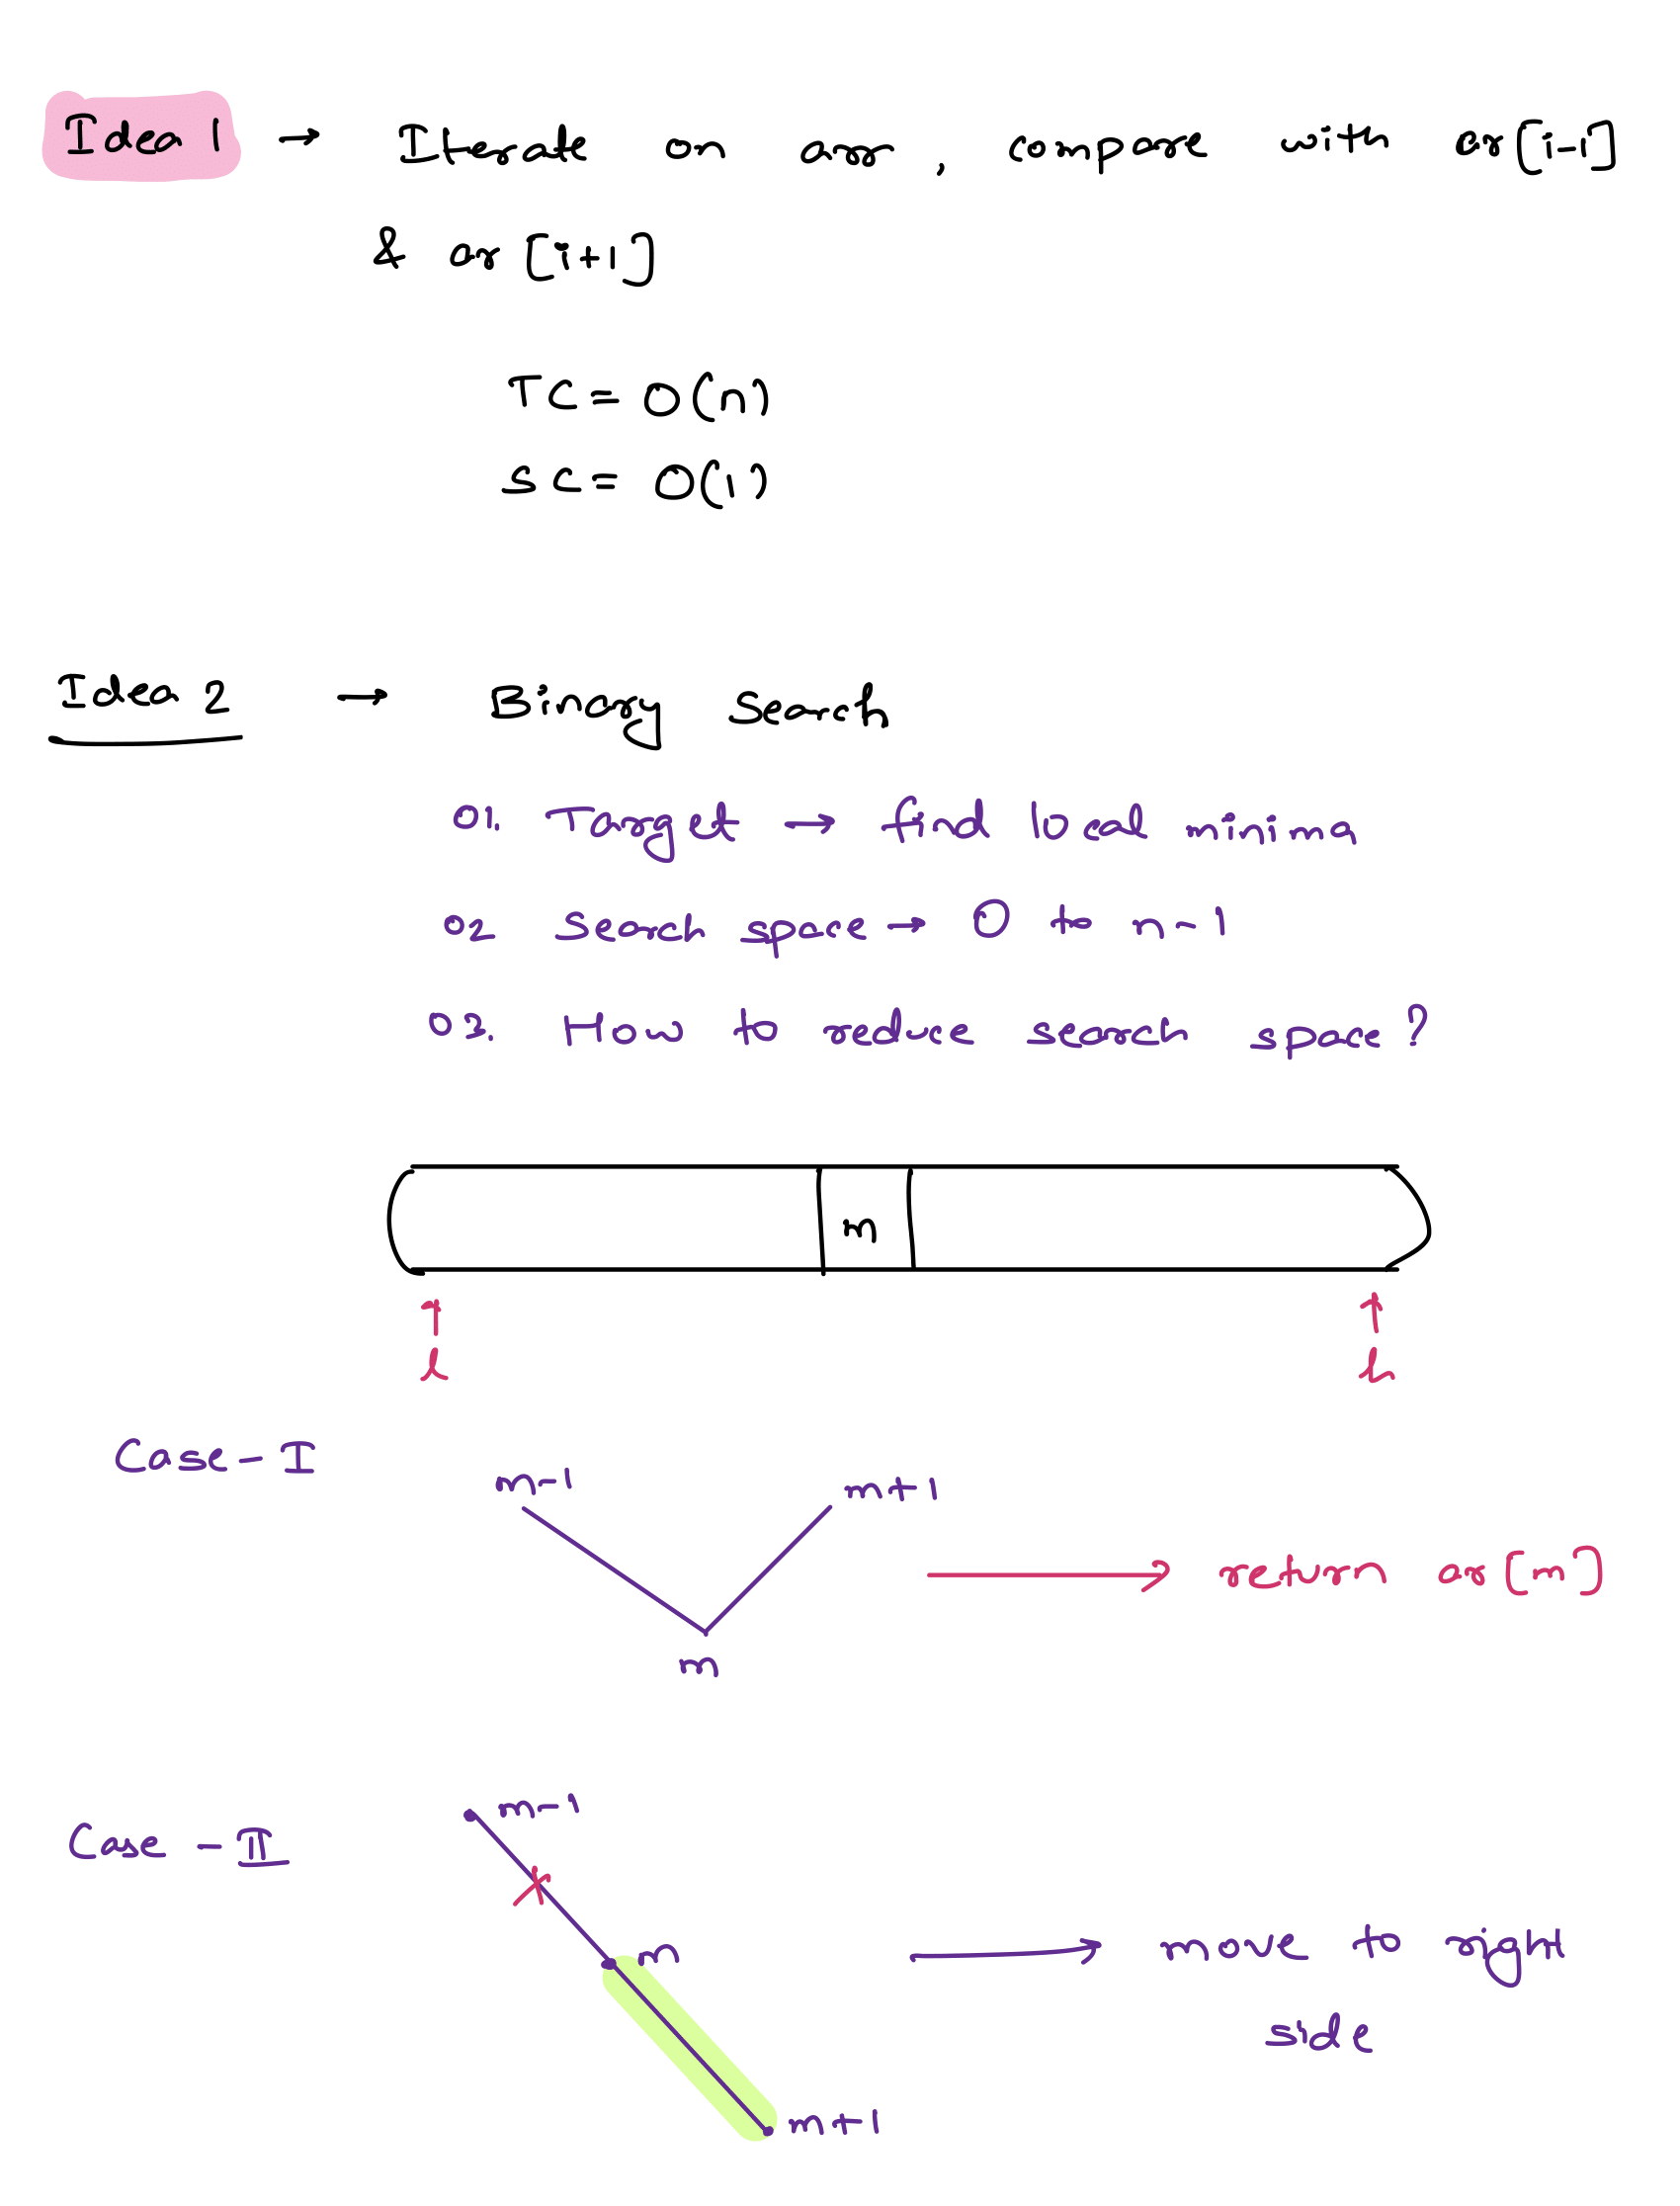 Idea 1 → Iterate on arr, compare with ar[i-1]
& ar[i+1]
TC = O(n)
SC = O(1)
Idea 2 → Binary Search
01. Target → find local minima
02 Search space → 0 to n-1
03. How to reduce search space?
m
l h
Case - I
m-1 m+1
→ return ar[m]
m
Case - II
m-1
m
→ move to right
side
m+1